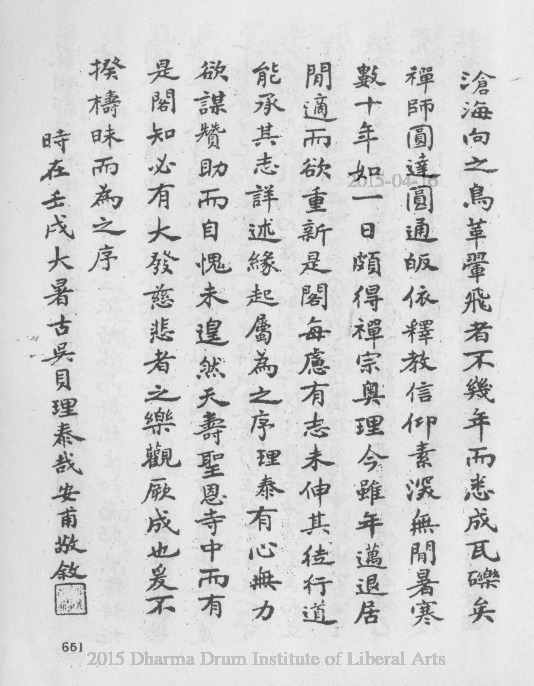 滄海向之鳥革翬飛者不幾年而悉成瓦礫矣
禪師圓達圓通皈依釋教信仰素深無間暑寒
數十年如一日頗得禪宗奧理今雖年邁退居
閒適而欲重新是閣每慮有志未伸其徒行道
能承其志詳述緣起屬為之序理泰有心無力
欲謀贊助而自愧未遑然天壽聖恩寺中而有
是閣知必有大發慈悲者之樂觀厥成也爰不
揆檮昧而為之序
時在壬戌大暑古吳貝理泰哉安甫敬敘
661
2015-04-16
2015 Dharma Drum Institute of Liberal Arts